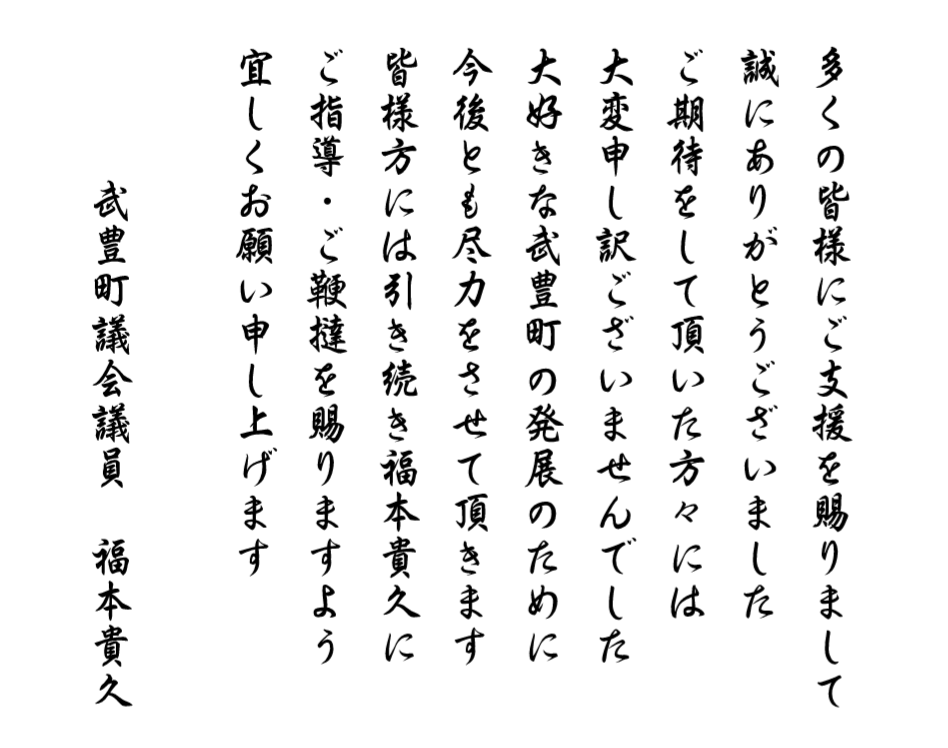 多くの皆様にご支援を賜りまして
誠にありがとうございました
ご期待をして頂いた方々には
大変申し訳ございませんでした
大好きな武豊町の発展のために
今後とも尽力をさせて頂きます
皆様方には引き続き福本貴久に
ご指導・ご鞭撻を賜りますよう
宜しくお願い申し上げます
武豊町議会議員　福本貴久